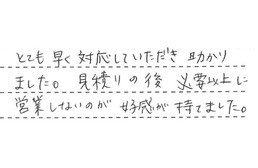 とても早く対応していただき助かり
ました。見積りの後 必要以上に
営業しないのが 好感が持てました。